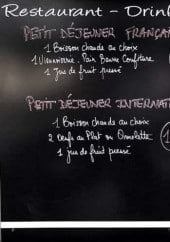 Restaurant - Drin
PETIT DÉJEUNER FRANÇA
1 Boisson chaude au choix
1 Viennoiserie, Pain Beurre Confiture
1 Jus de fruit pressé
PETIT DÉJEUNER INTERNAT
1 Boisson chaude au choix
2 Oeufs au Plat ou Omelette
1 jus de fruit pressé
1